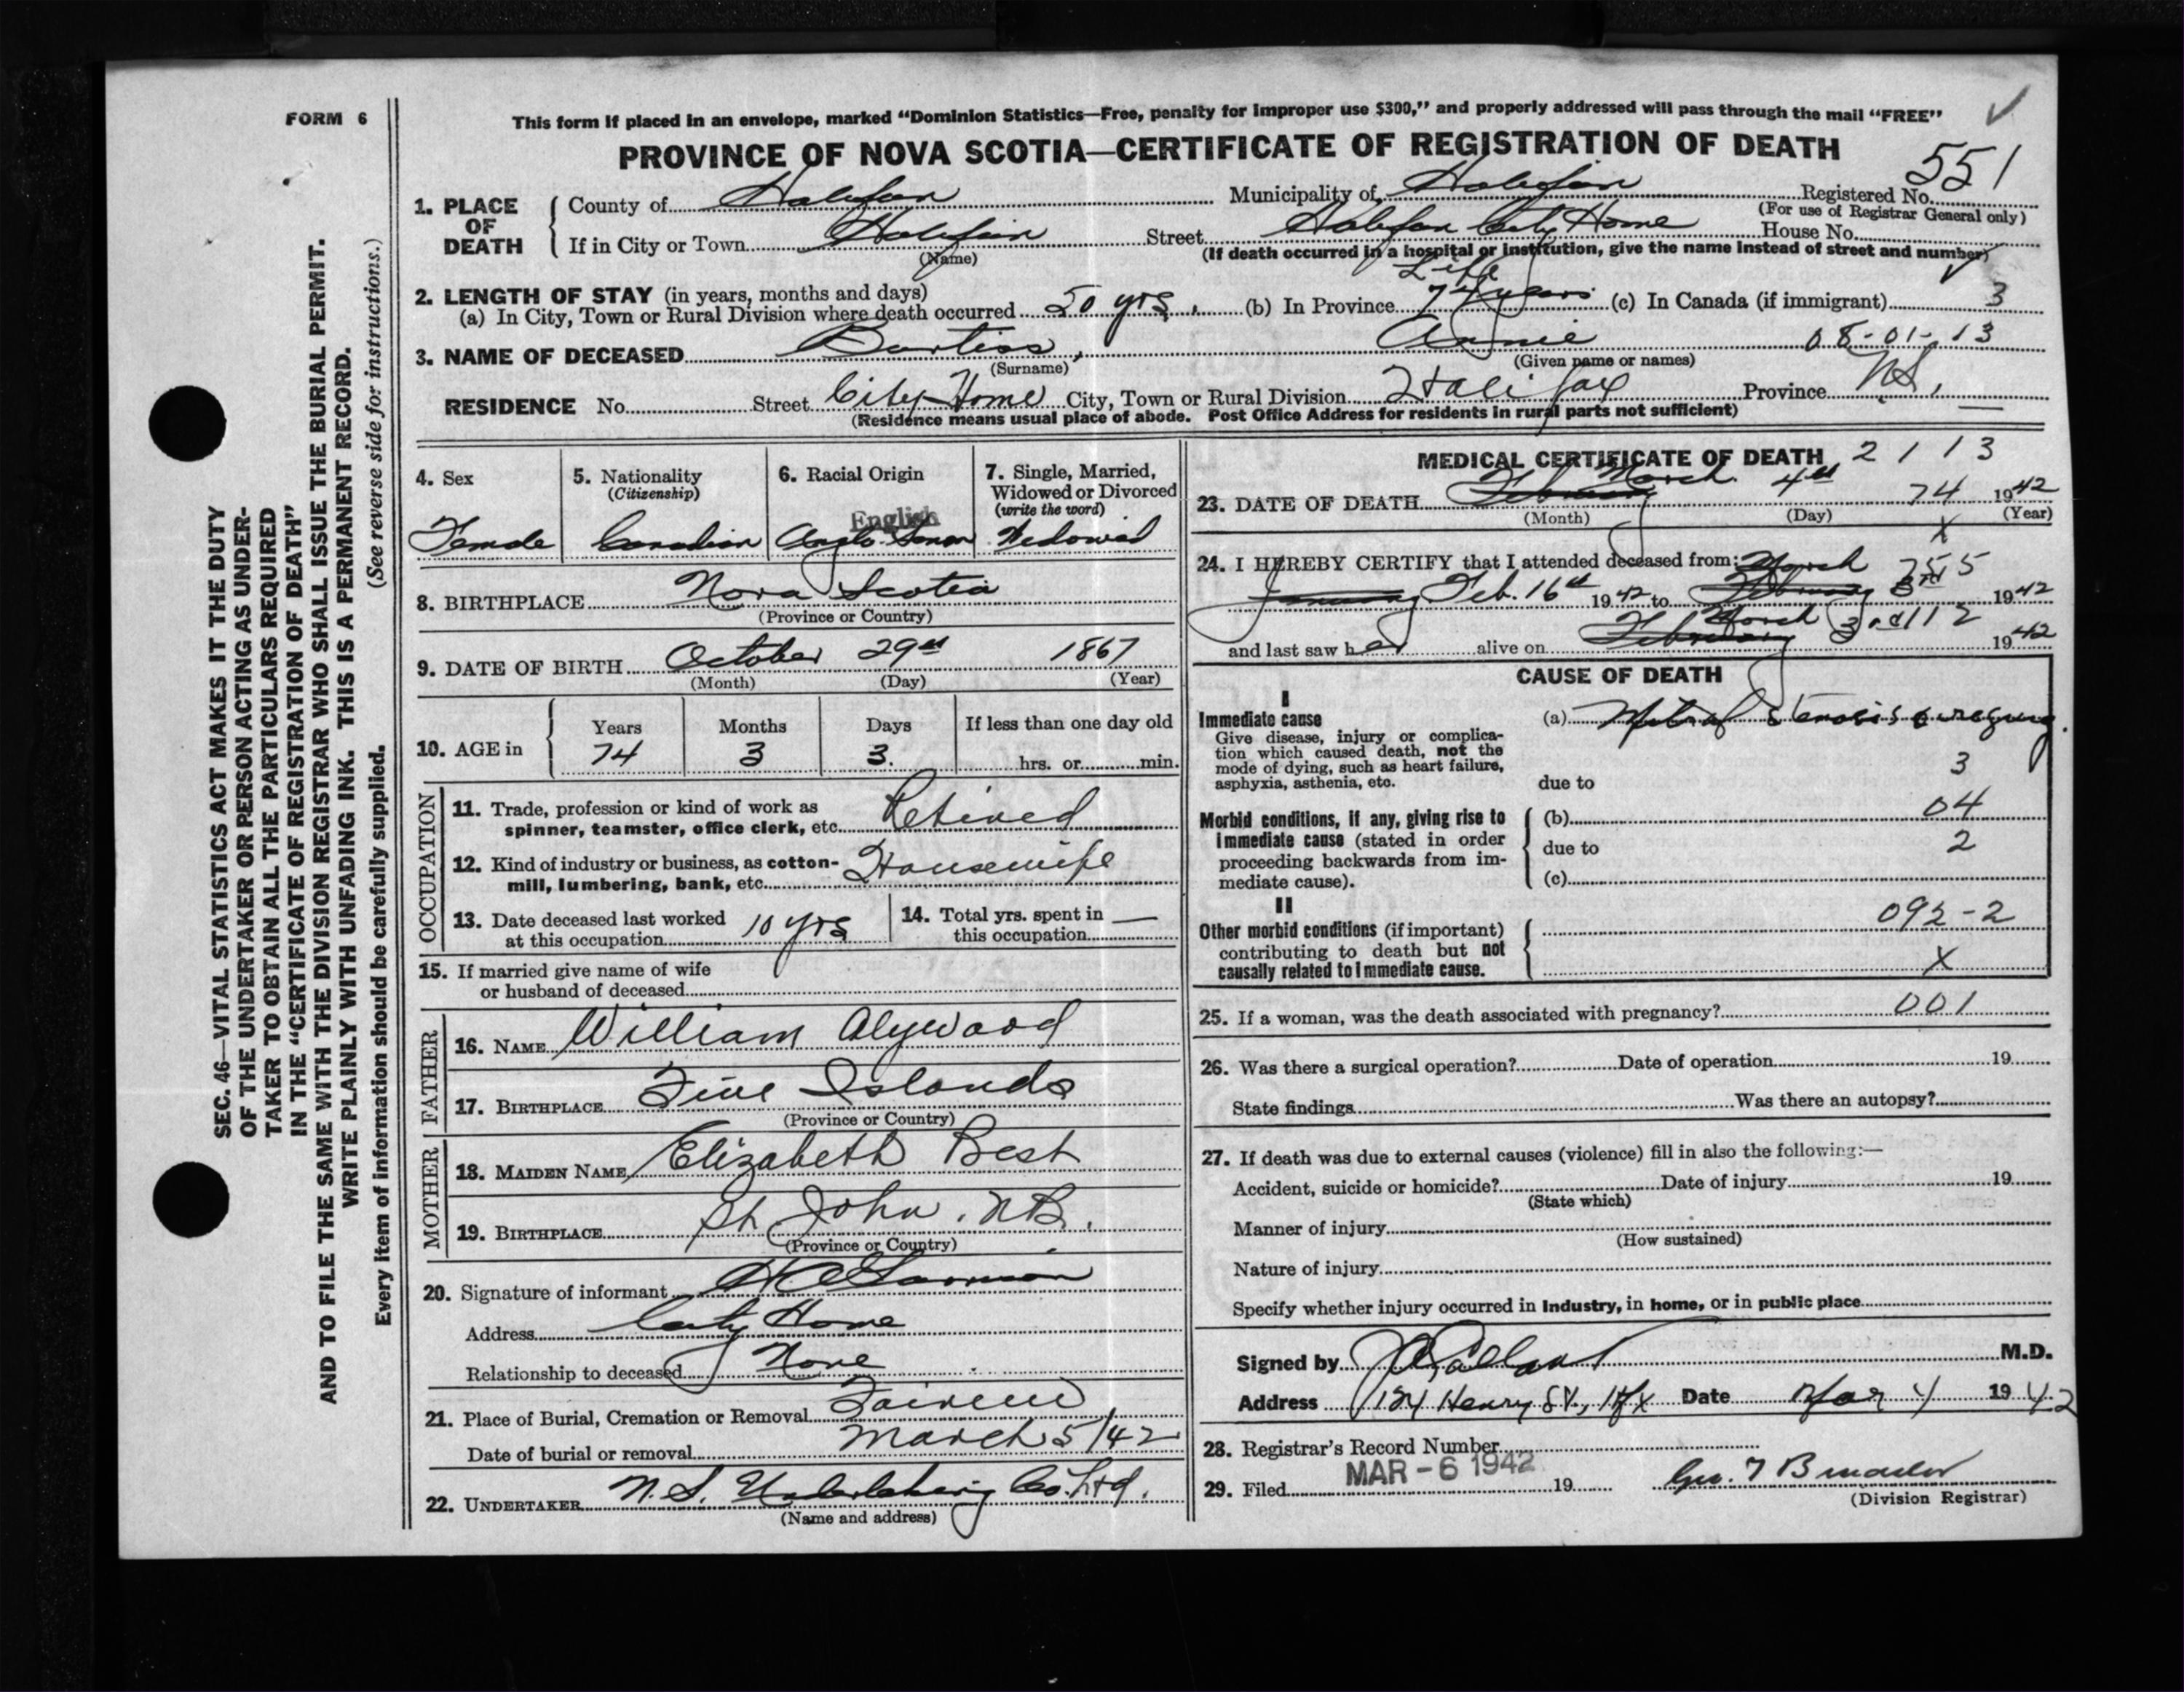 FORM 6
This form if placed in an envelope, marked "Dominion Statistics—Free, penalty for improper use $300," and properly addressed will pass through the mail "FREE"
PROVINCE OF NOVA SCOTIA—CERTIFICATE OF REGISTRATION OF DEATH
551
1. PLACE OF DEATH
County of Halifax Municipality of Halifax Registered No.
(For use of Registrar General only)
If in City or Town Halifax Street Halifax City Home House No.
(Name) (If death occurred in a hospital or institution, give the name instead of street and number)
Life
2. LENGTH OF STAY (in years, months and days)
(a) In City, Town or Rural Division where death occurred 50 yrs. (b) In Province 74 years (c) In Canada (if immigrant) 3
3. NAME OF DECEASED , Annie 08-01-13
(Surname) (Given name or names)
RESIDENCE No. Street City Home City, Town or Rural Division Halifax Province NS.
(Residence means usual place of abode. Post Office Address for residents in rural parts not sufficient)
4. Sex
Female
5. Nationality
(Citizenship)
Canadian
6. Racial Origin
English
Anglo Saxon
7. Single, Married,
Widowed or Divorced
(write the word)
Widowed
8. BIRTHPLACE Nova Scotia
(Province or Country)
9. DATE OF BIRTH October 29th 1867
(Month) (Day) (Year)
10. AGE in
Years Months Days If less than one day old
74 3 3. hrs. or min.
OCCUPATION
11. Trade, profession or kind of work as
spinner, teamster, office clerk, etc. Retired
12. Kind of industry or business, as cotton-
mill, lumbering, bank, etc. Housewife
13. Date deceased last worked
at this occupation 10 yrs
14. Total yrs. spent in
this occupation —
15. If married give name of wife
or husband of deceased
FATHER
16. NAME William Alywood
17. BIRTHPLACE Five Islands
(Province or Country)
MOTHER
18. MAIDEN NAME Elizabeth Best
19. BIRTHPLACE St. John. N.B.
(Province or Country)
20. Signature of informant
Address City Home
Relationship to deceased None
21. Place of Burial, Cremation or Removal
Date of burial or removal March 5/42
22. UNDERTAKER N.S. Undertaking Co. Ltd.
(Name and address)
MEDICAL CERTIFICATE OF DEATH 2113
March
23. DATE OF DEATH February 4th 74 1942
(Month) (Day) (Year)
X
24. I HEREBY CERTIFY that I attended deceased from: March 7515
January Feb. 16th 1942 to February 3rd 1942
March 3rd 112
and last saw her alive on February 1942
CAUSE OF DEATH
I
Immediate cause
Give disease, injury or complica-
tion which caused death, not the
mode of dying, such as heart failure,
asphyxia, asthenia, etc.
(a) Mitral Stenosis & regurg.
3
due to
Morbid conditions, if any, giving rise to
immediate cause (stated in order
proceeding backwards from im-
mediate cause).
(b) 04
due to 2
(c)
II
Other morbid conditions (if important)
contributing to death but not
causally related to immediate cause.
092-2
X
25. If a woman, was the death associated with pregnancy? 001
26. Was there a surgical operation? Date of operation 19
State findings Was there an autopsy?
27. If death was due to external causes (violence) fill in also the following:—
Accident, suicide or homicide? Date of injury 19
(State which)
Manner of injury
(How sustained)
Nature of injury
Specify whether injury occurred in industry, in home, or in public place
Signed by M.D.
Address 124 Henry St., Hfx Date Mar 4 1942
28. Registrar's Record Number
29. Filed MAR - 6 1942 19
(Division Registrar)
SEC. 46—VITAL STATISTICS ACT MAKES IT THE DUTY
OF THE UNDERTAKER OR PERSON ACTING AS UNDER-
TAKER TO OBTAIN ALL THE PARTICULARS REQUIRED
IN THE "CERTIFICATE OF REGISTRATION OF DEATH"
AND TO FILE THE SAME WITH THE DIVISION REGISTRAR WHO SHALL ISSUE THE BURIAL PERMIT.
WRITE PLAINLY WITH UNFADING INK. THIS IS A PERMANENT RECORD.
Every item of information should be carefully supplied. (See reverse side for instructions.)